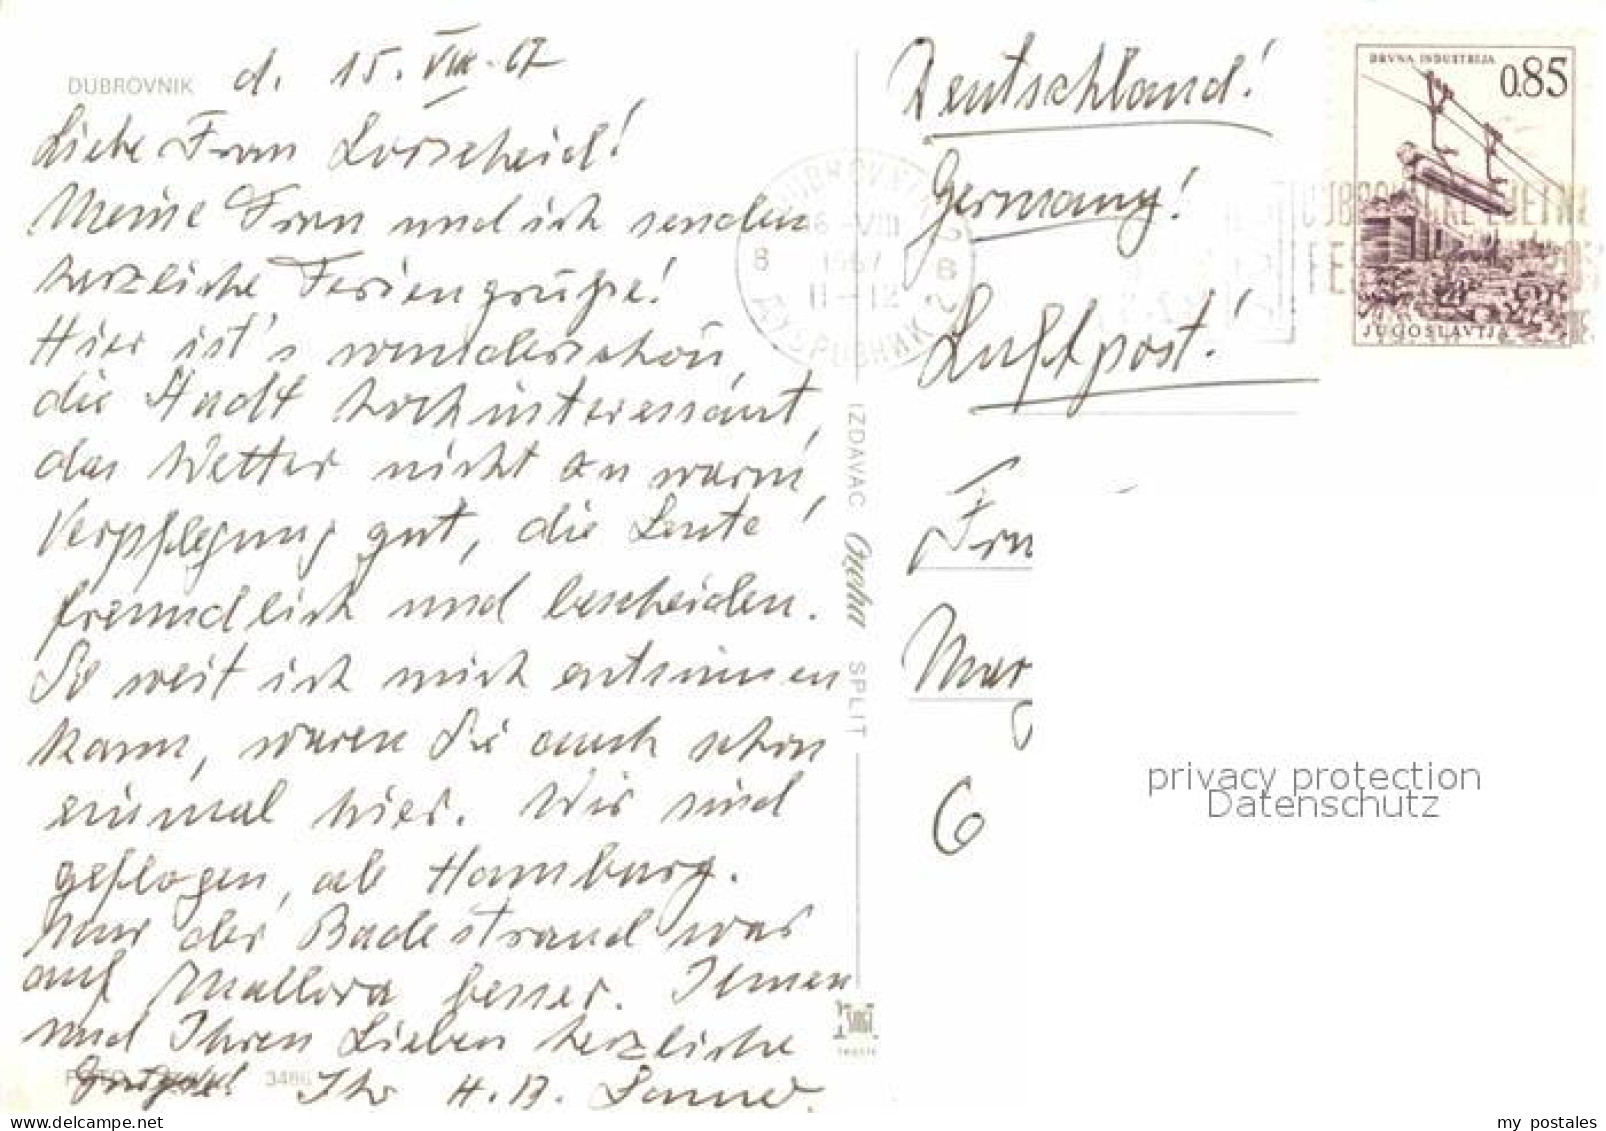 DUBROVNIK
d. 15. VIII. 67
Liebe Frau Lorscheid!
Meine Frau und ich senden
herzliche Feriengrüße!
Hier ist's wunderschön,
die Stadt hochinteressant,
das Wetter nicht zu warm,
Verpflegung gut, die Leute
freundlich und bescheiden.
So weit ich mich entsinnen
kann, waren Sie auch schon
einmal hier. Wir sind
geflogen, ab Hamburg.
Nur der Badestrand war
auf Mallorca besser. Ihnen
und Ihren Lieben herzliche
Grüße! Ihr H. B.
3486
IZDAVAC SPLIT
Deutschland!
Germany!
Luftpost!
DRVNA INDUSTRIJA
0.85
JUGOSLAVIJA
VIII
1967
11-12
8
6
privacy protection
Datenschutz
my postales